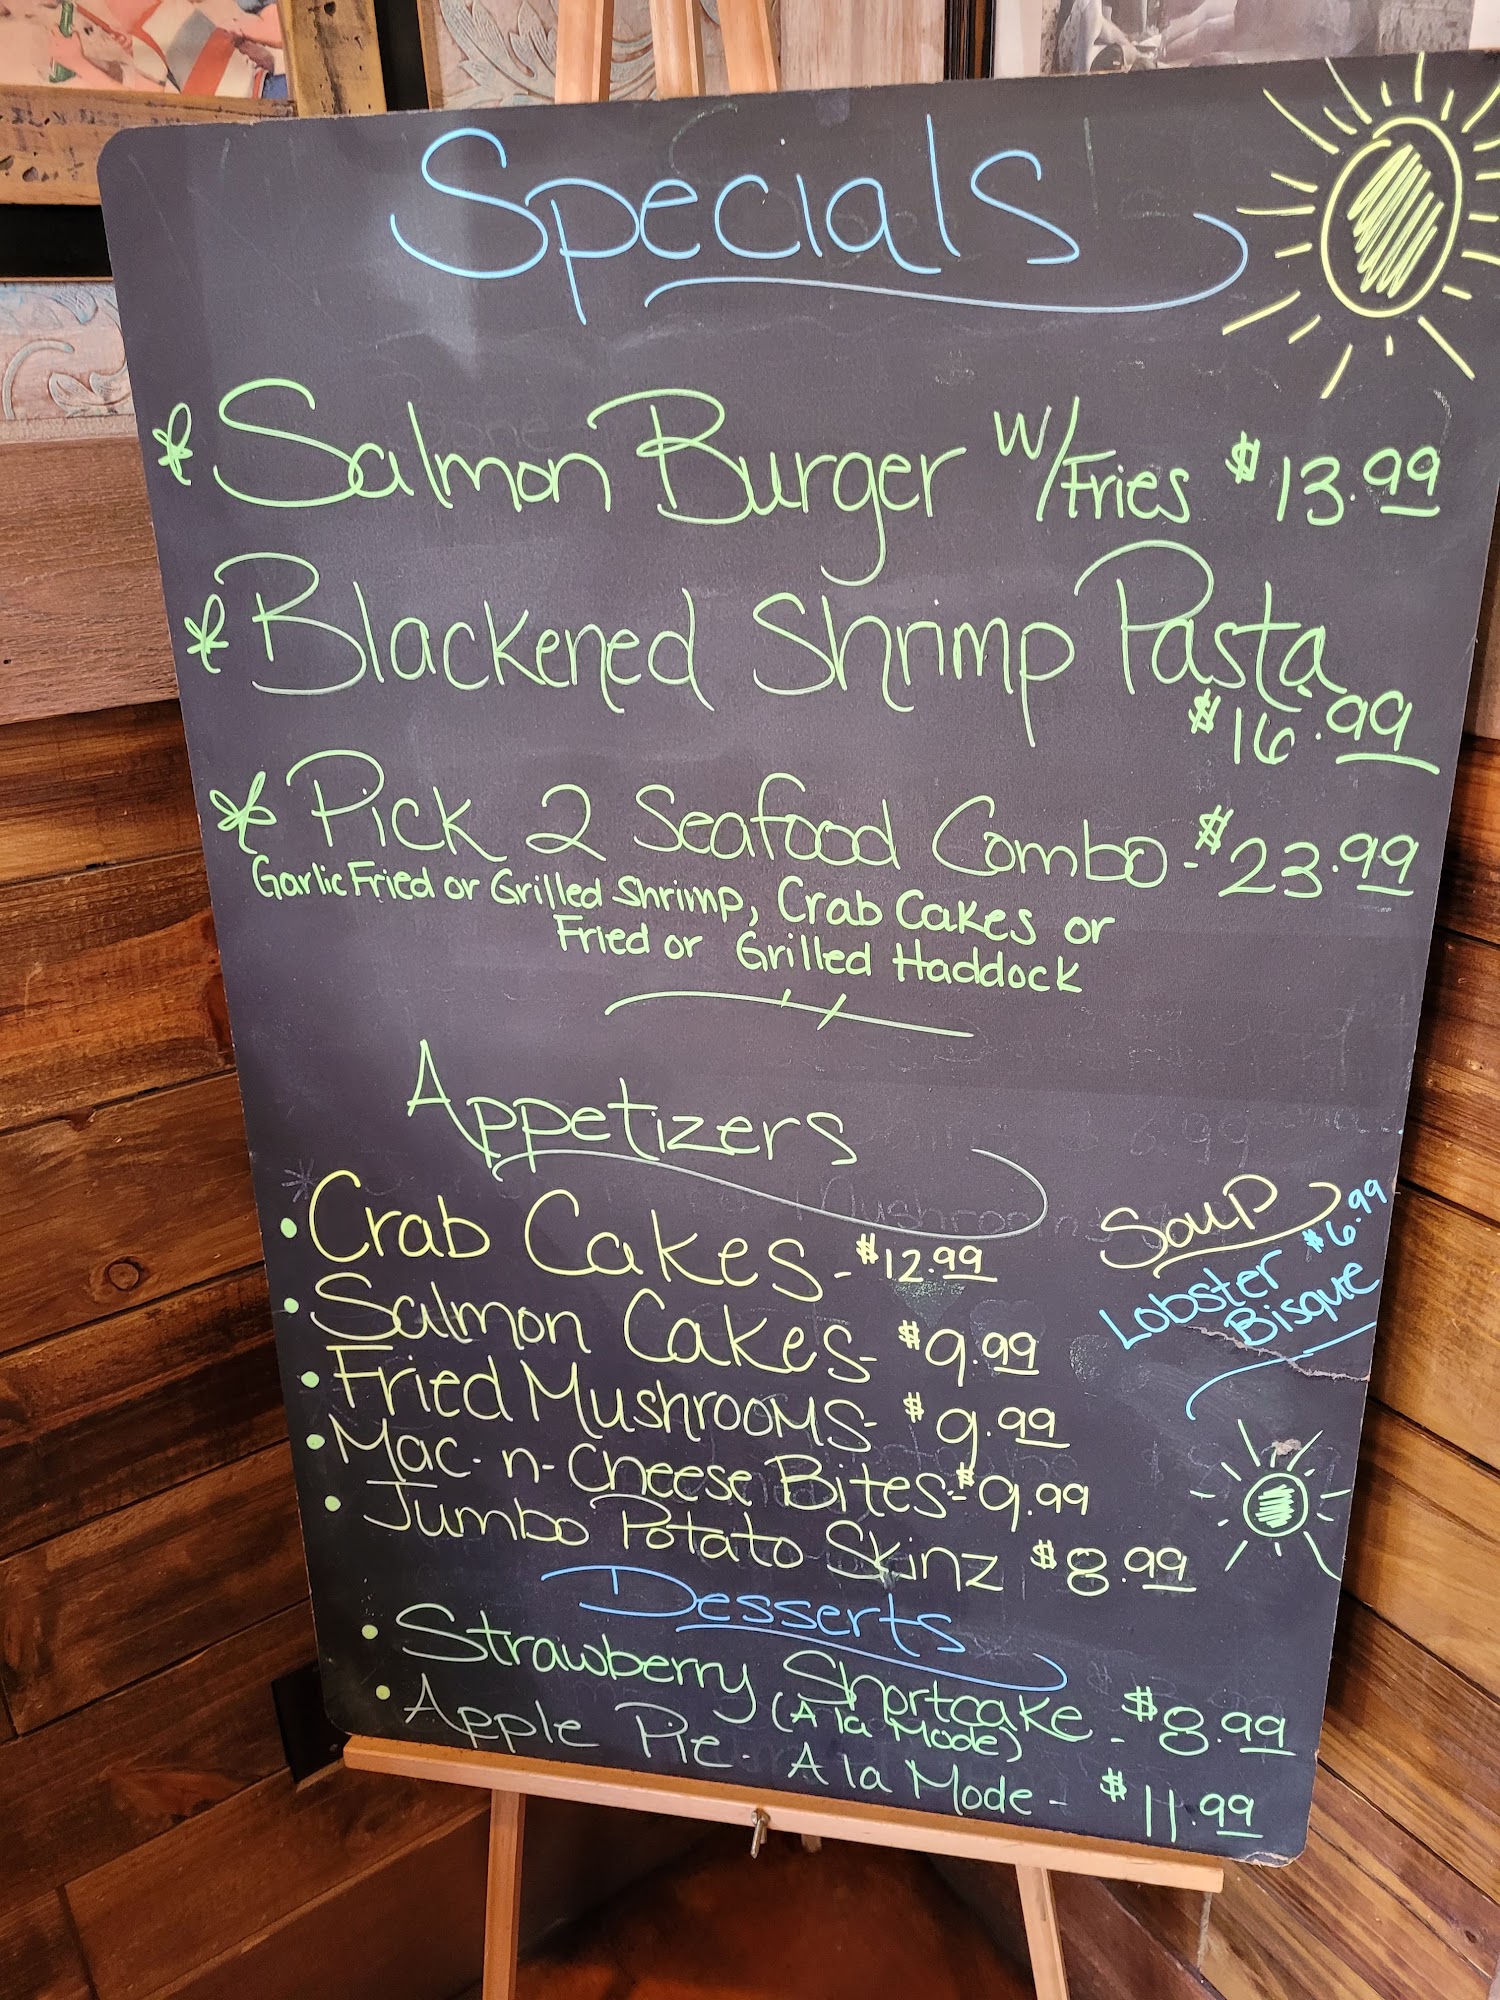 Specials
* Salmon Burger w/Fries $13.99
* Blackened Shrimp Pasta
$16.99
* Pick 2 Seafood Combo - $23.99
Garlic Fried or Grilled Shrimp, Crab Cakes or
Fried or Grilled Haddock
Appetizers
• Crab Cakes - $12.99
• Salmon Cakes - $9.99
• Fried Mushrooms - $9.99
• Mac-n-Cheese Bites - $9.99
• Jumbo Potato Skinz $8.99
Soup
$6.99
Lobster
Bisque
Desserts
• Strawberry Shortcake - $8.99
(A la Mode)
• Apple Pie - A la Mode - $11.99